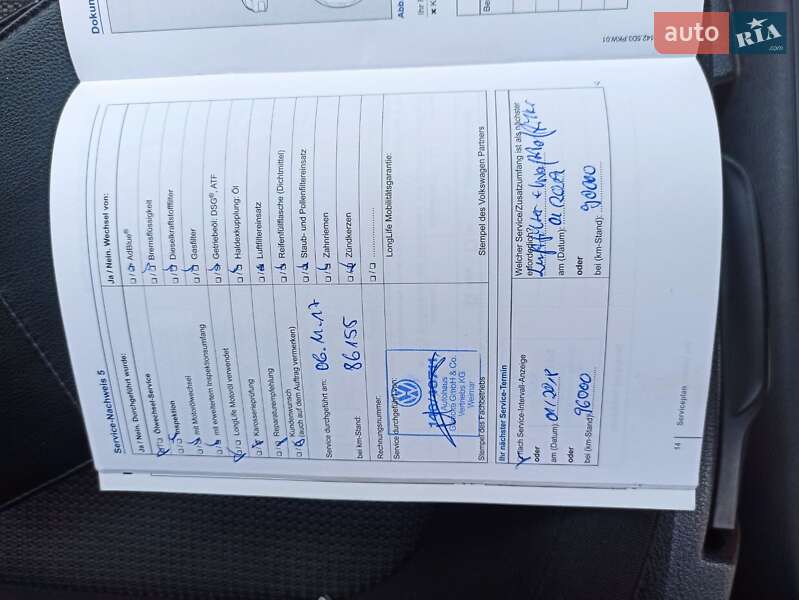 Dokun
Abb.
Ihr
Be
142.5D3.PKW.01
auto RIA
.com
Service-Nachweis 5
Ja / Nein. Durchgeführt wurde:
Ölwechsel-Service
Inspektion
mit Motorölwechsel
mit erweitertem Inspektionsumfang
LongLife Motoröl verwendet
Karosserieprüfung
Reparaturempfehlung
Kundenwunsch
(auch auf dem Auftrag vermerken)
Service durchgeführt am: 06.11.17
bei km-Stand: 86155
Rechnungsnummer:
Service durchgeführt von:
Autohaus
GmbH & Co.
Vertriebs KG
Weimar
Stempel des Fachbetriebs
Ja / Nein. Wechsel von:
AdBlue®
Bremsflüssigkeit
Dieselkraftstofffilter
Gasfilter
Getriebeöl: DSG®, ATF
Haldexkupplung: Öl
Luftfiltereinsatz
Reifenfüllflasche (Dichtmittel)
Staub- und Pollenfiltereinsatz
Zahnriemen
Zündkerzen
LongLife Mobilitätsgarantie:
Stempel des Volkswagen Partners
Ihr nächster Service-Termin
Nach Service-Intervall-Anzeige
oder
am (Datum):
oder
bei (km-Stand): 96000
Welcher Service/Zusatzumfang ist als nächster
erforderlich?
Luftfilter +
am (Datum):
oder
bei (km-Stand): 90000
14 Serviceplan